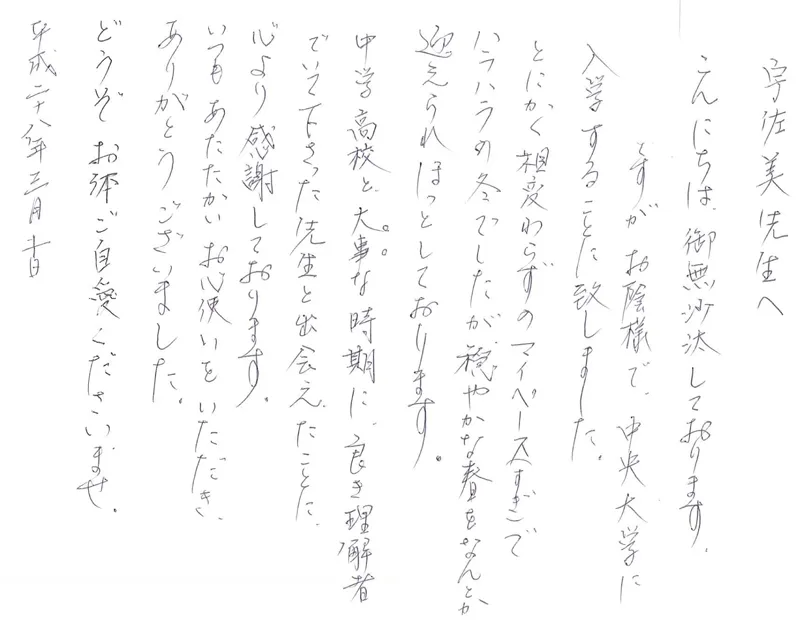 宇佐美先生へ
こんにちは、御無沙汰しております。
ですが お陰様で、中央大学に
入学することに致しました。
とにかく 相変わらずの マイペースすぎで
ハラハラの冬でしたが 穏やかな春をなんとか
迎えられ ほっとしております。
中学 高校と 大事な 時期に、良き理解者
でいて下さった 先生と出会えたことに、
心より 感謝しております。
いつも あたたかい お心使いを いただき、
ありがとうございました。
どうぞ お体ご自愛くださいませ。
平成二十八年三月 日